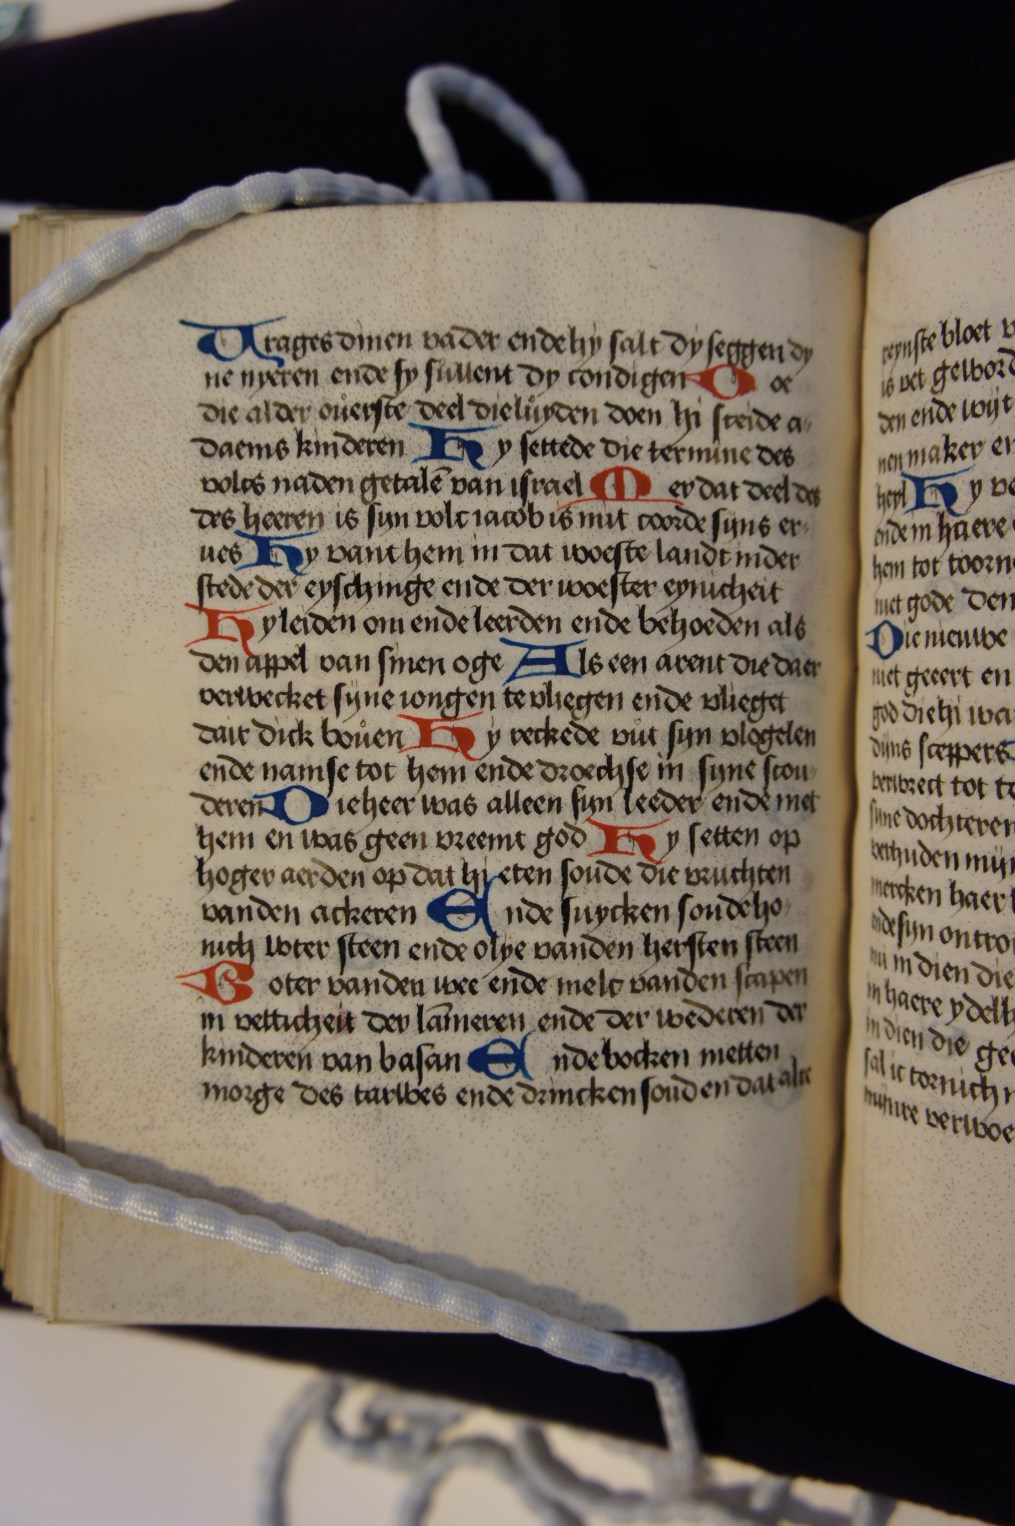 Vrages dinen vader ende hy salt dy seggen dy
ne nyeren ende sy sullent dy condigen Doe
die alder ouerste deel die luyden doen hi sceide a
daems kinderen Hy settede die termine des
volcs na den getale van israel Mer dat deel des
des heeren is syn volc iacob is mit coorde syns er
ues Hy vant hem in dat woeste landt inder
stede der eyschinge ende der woester eynicheit
Hy leiden om ende leerden ende behoeden als
den appel van sinen oge Als een arent die daer
verwecket syne iongen te vliegen ende vlieget
dair dick bouen Hy reckede vut syn vlogelen
ende namse tot hem ende droechse in syne scou
deren Die heer was alleen syn leeder ende met
hem en was geen vreemt god Hy setten op
hoger aerden op dat hi eten soude die vruchten
vanden ackeren Ende suycken soude ho
nich wter steen ende olye vanden hersten steen
Boter vanden vee ende melc vanden scapen
in vetticheit der lāmeren ende der wederen der
kinderen van basan Ende bocken metten
morge des tarwes ende drincken souden dat alre
reynste bloet
is vet gelword
den ende wijt
nen maker en
heyl Hy
ende in haere
hem tot toorn
niet gode Den
Die nieuwe
niet geeert en
god die hi
dijns sceppers
verwect tot
syne dochteren
mercken haer
ende syn
in dien die
in haere ydelh
in dien die
sal ic tornich